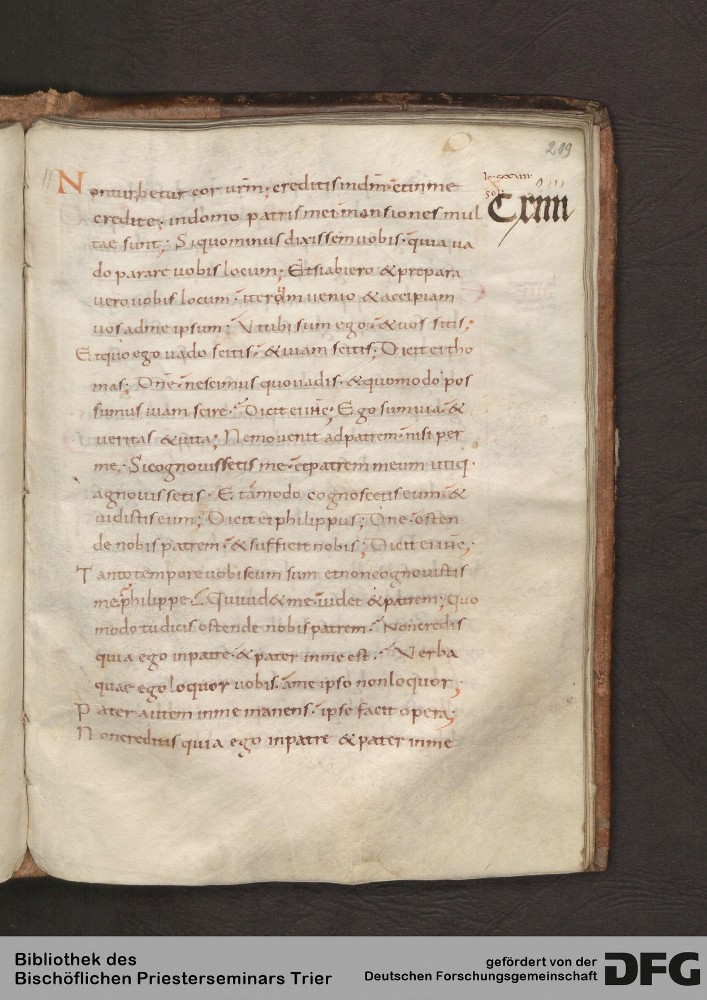 209
Nonturbetur cor urm; creditis indm etinme
credite; indomo patris mei mansiones mul
tae sunt; Siquominus dixissem uobis quia ua
do parare uobis locum; Etsi abiero & prepara
uero uobis locum iterum uenio & accipiam
uos adme ipsum; Vtubi sum ego & uos sitis;
Et quo ego uado scitis & uiam scitis; Dicit ei tho
mas; Dne nescimus quo uadis & quomodo pos
sumus uiam scire. Dicit ei ihs; Ego sum uia &
ueritas & uita; Nemo uenit adpatrem nisi per
me; Si cognouissetis me et patrem meum utiq.
agnouissetis. Et amodo cognoscetis eum &
uidistis eum; Dicit ei philippus; Dne osten
de nobis patrem & sufficit nobis; Dicit ei ihs;
Tanto tempore uobiscum sum et non cognouistis
me philippe. Qui uid& me uidet & patrem; Quo
modo tu dicis ostende nobis patrem. Non credis
quia ego inpatre & pater inme est. Verba
quae ego loquor uobis ame ipso non loquor;
Pater autem inme manens ipse facit opera;
Non creditis quia ego inpatre & pater inme
Cxiiii
Bibliothek des
Bischöflichen Priesterseminars Trier
gefördert von der
Deutschen Forschungsgemeinschaft
DFG